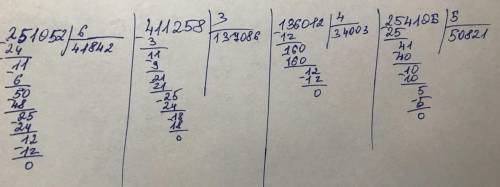 251052 6
-24 41842
-11
6
-50
48
-25
24
-12
-12
0
-411258 3
3 137086
11
9
21
21
-25
24
-18
18
0
-136012 4
12 34003
160
160
-12
-12
0
254105 5
25 50821
41
40
-10
10
5
-5
0